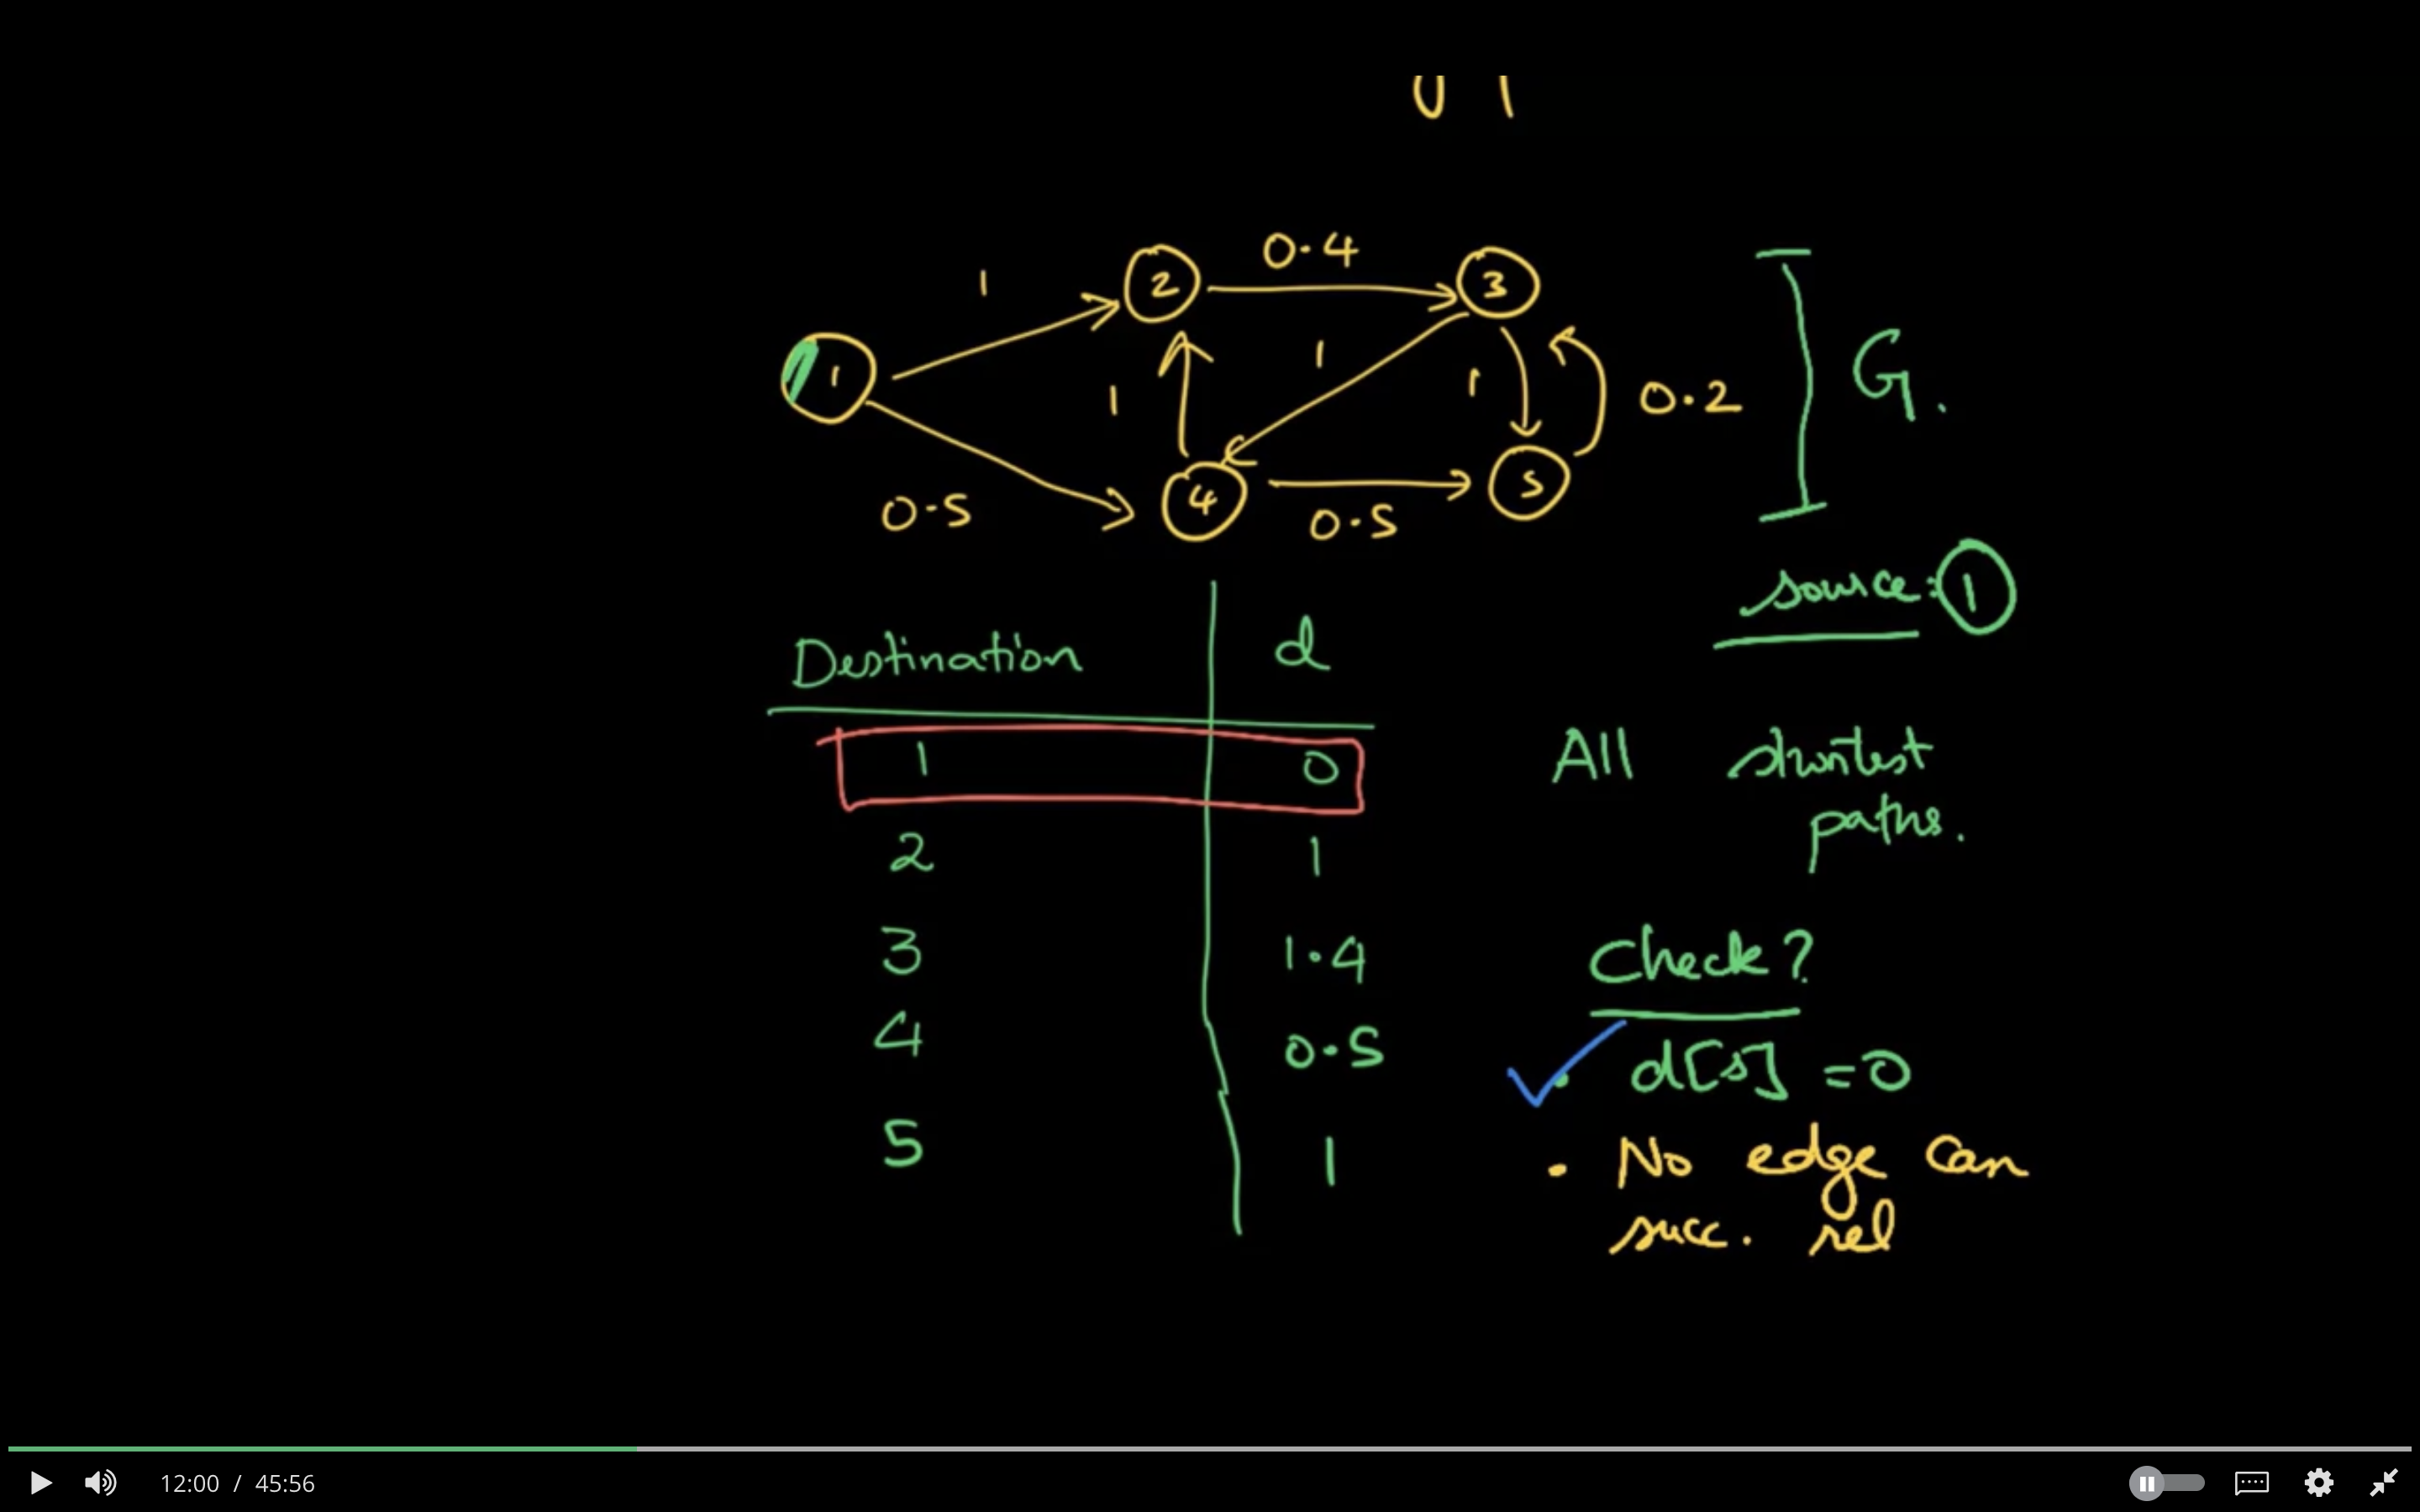 1
2
0.4
3
1
1
1
1
0.2
G.
4
0.5
0.5
5
source: 1
Destination d
1 0
2 1
3 1.4
4 0.5
5 1
All shortest
paths.
Check?
d[s] = 0
. No edge can
succ. rel
12:00 / 45:56